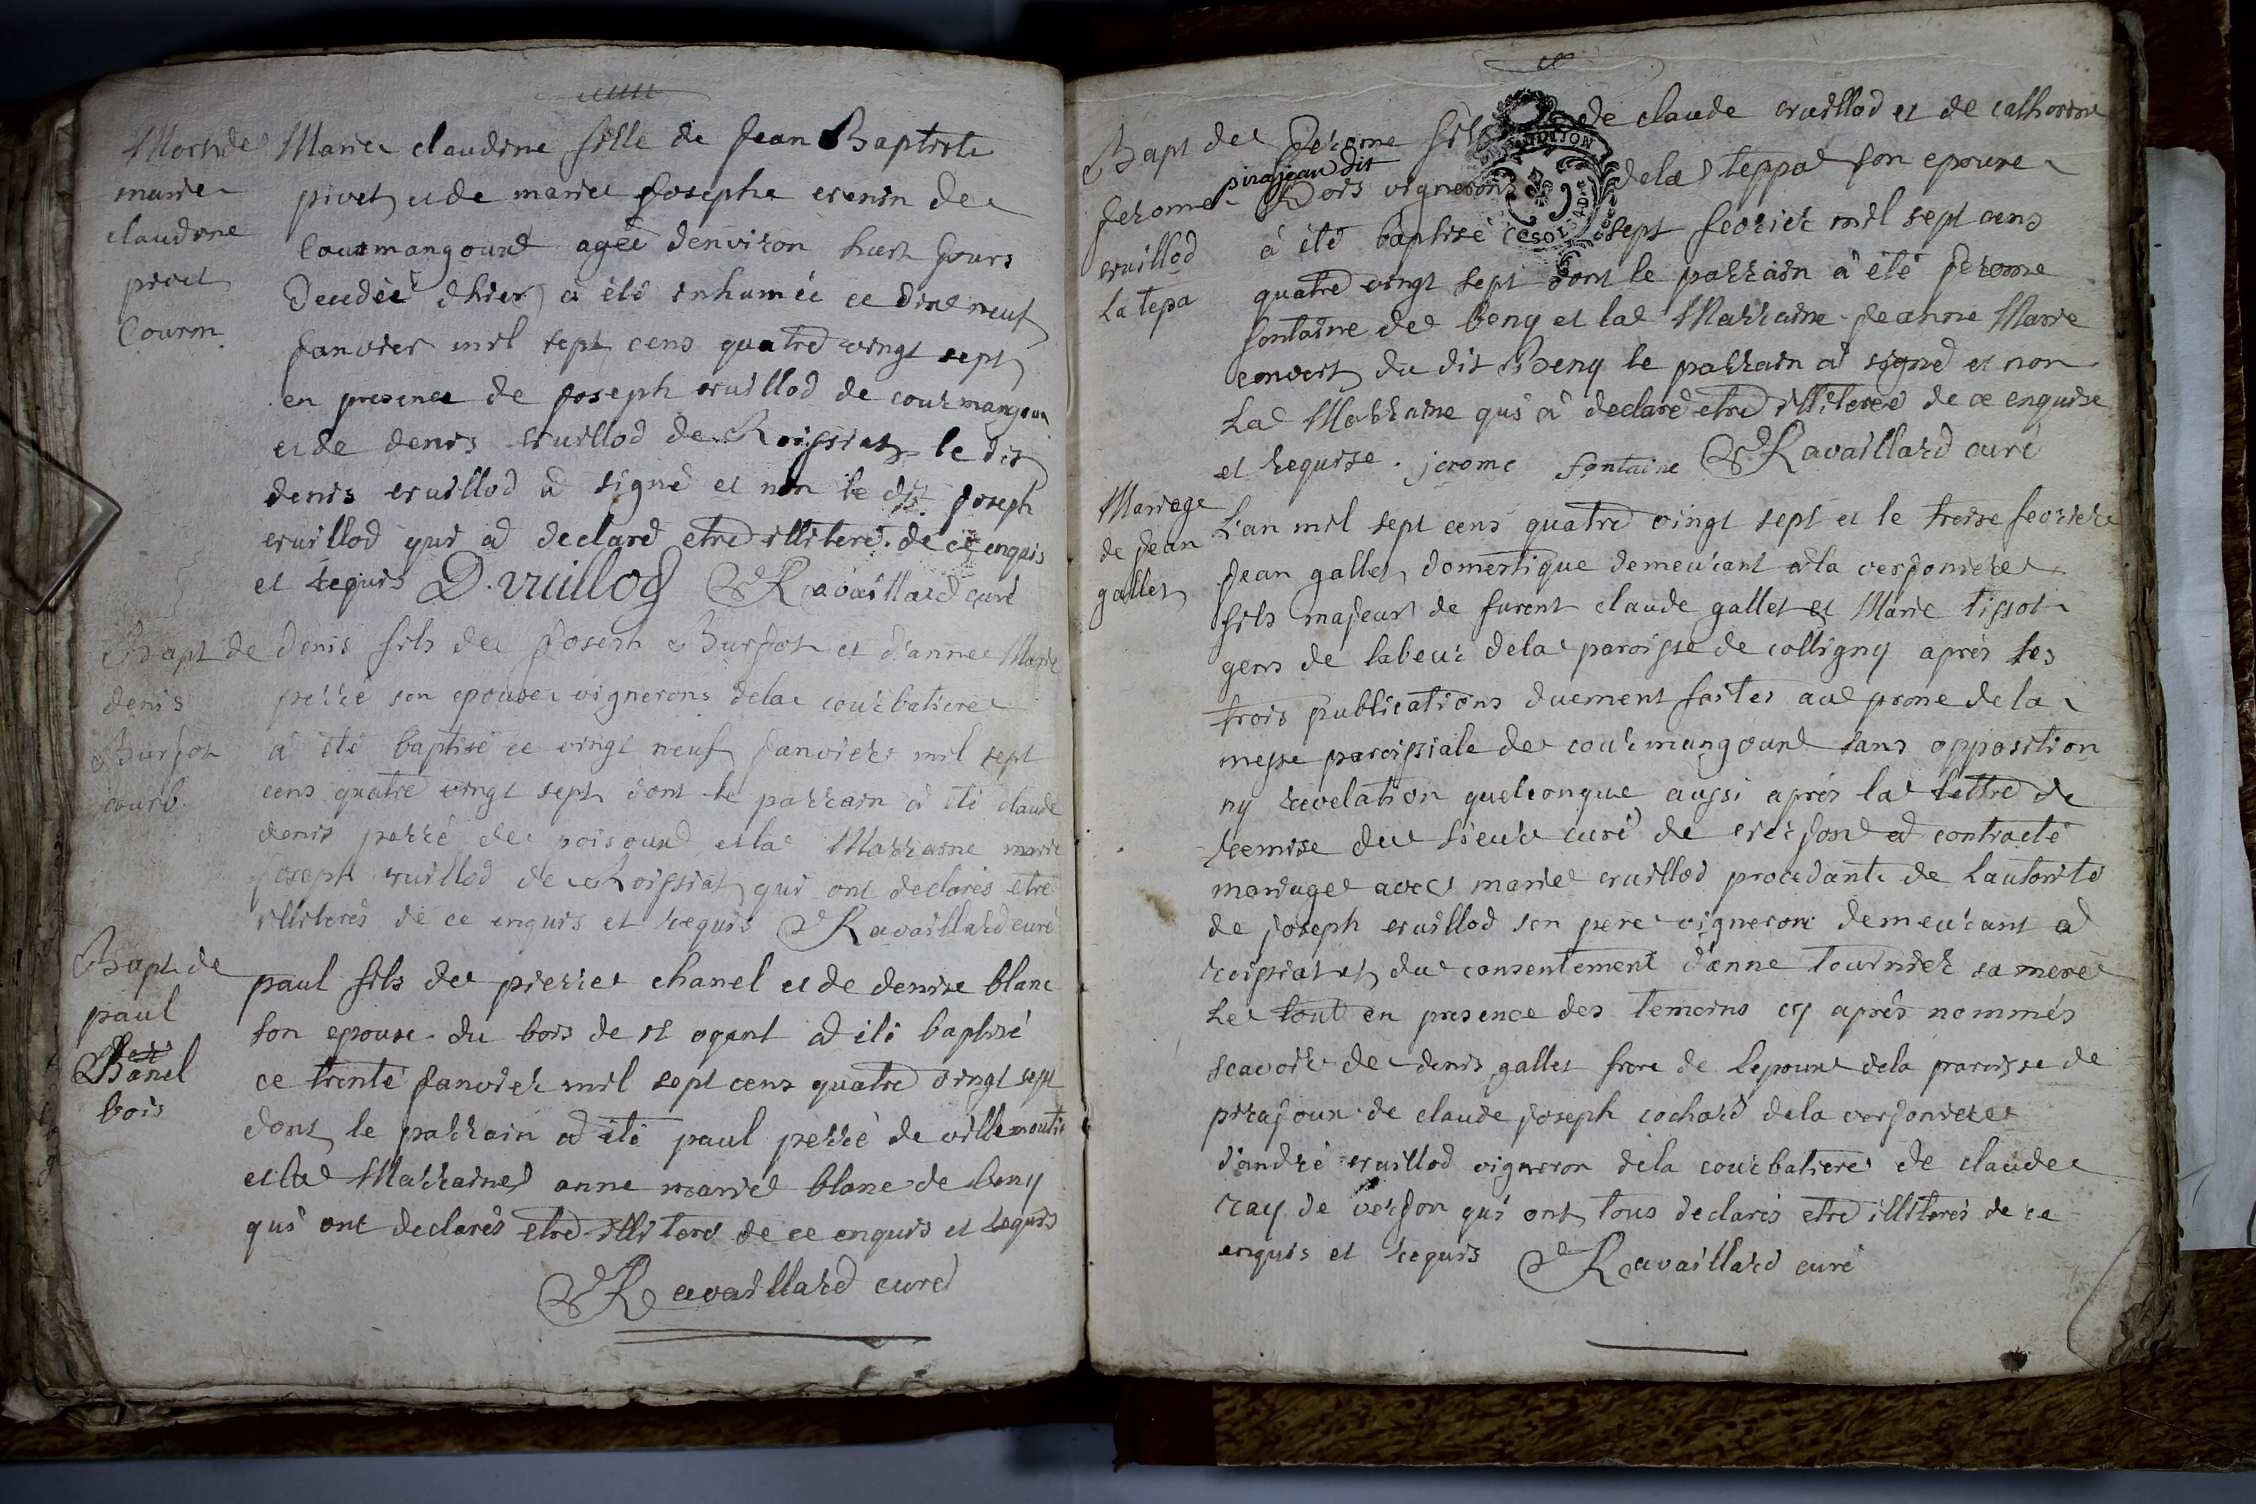 Mort de
marie
claudine
pivet
Courm.
Marie claudine fille de Jean Baptiste
pivet et de marie Josephe venin de
Courmangoux agée d'environ huit Jours
decedée d'hier a été inhumée ce dixneuf
Janvier mil sept cens quatre vingt sept
en presence de Joseph vuillod de courmangoux
et de denis vuillod de Roissiat le dit
denis vuillod a signé et non le dit Joseph
vuillod qui a declaré etre illiteré de ce enquis
et requis D. vuillod Ravaillard curé
Bapt de
denis
Burjot
courb.
denis fils de Joseph Burjot et d'anne Marie
perré son epouse vignerons de la courbatiere
a été baptisé ce vingt neuf Janvier mil sept
cens quatre vingt sept dont le parrain a été claude
denis perré de poisoux et la Marraine marie
Joseph vuillod de Roissiat qui ont declarés etre
illiterés de ce enquis et requis Ravaillard curé
Bapt de
paul
Chanel
bois
paul fils de pierre chanel et de denise blanc
son epouse du bois de st ogent a été baptisé
ce trente Janvier mil sept cens quatre vingt sept
dont le parrain a été paul perré de villemoutier
et la Marraine anne marie blanc de beny
qui ont declarés etre illiteré de ce enquis et requis
Ravaillard curé
Bapt de
Jerome
vuillod
La tepa
Jerome fils de claude vuillod et de catherine
pirajean dit
Bois vignerons de la teppa son epouse
a été baptisé ce sept fevrier mil sept cens
quatre vingt sept dont le parrain a été Jerome
fontaine de beny et la Marraine Jeanne Marie
convert du dit Beny le parrain a signé et non
La Marraine qui a declaré etre illiterée de ce enquise
et requise. jerome fontaine Ravaillard curé
Mariage
de Jean
gallet
L'an mil sept cens quatre vingt sept et le treize fevrier
Jean gallet domestique demeurant a la verjonniere
fils majeur de furent claude gallet et Marie tissot
gens de labeur de la paroisse de colligny après les
trois publications duement faites au prone de la
messe paroissiale de courmangoux sans opposition
ny revelation quelconque aussi après la lettre de
remise du sieur curé de verjon a contracté
mariage avec marie vuillod procedante de L'autorité
de Joseph vuillod son pere vigneron demeurant a
roissiat et du consentement d'anne tournier sa mere
Le tout en presence des temoins cy après nommés
scavoir de denis gallet frere de L'epoux de la paroisse de
pirajoux de claude joseph cochard de la verjonniere
d'andré vuillod vigneron de la courbatiere de claude
ray de verjon qui ont tous declarés etre illiterés de ce
enquis et requis Ravaillard curé